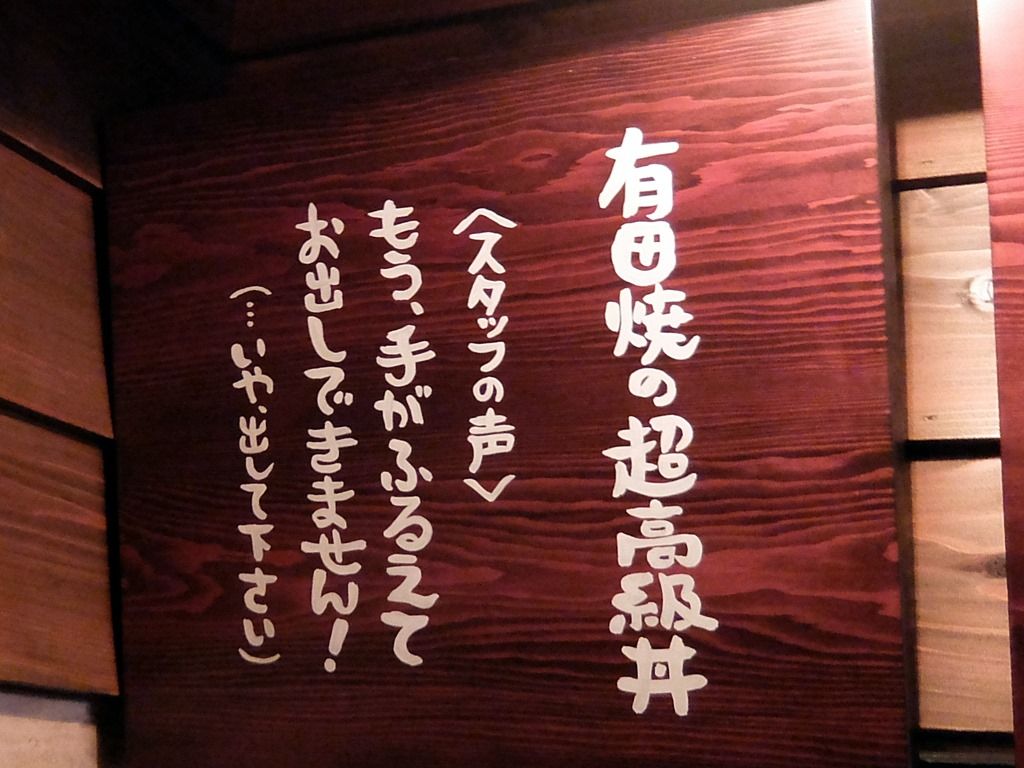 有田焼の超高級丼
〈スタッフの声〉
もう、手がふるえて
お出しできません!
(…いや、出して下さい)